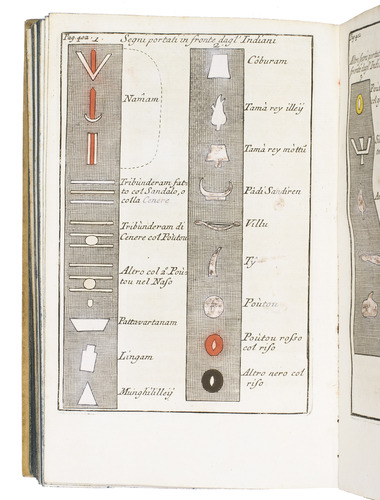 Pag. 402. 1. Segni portati in fronte dagl' Indiani
2.
Namam
Tribùnderam fat-
to col Sandalo, o
colla Cenere
Tribùnderam di
Cenere col Poùtou
Altro col á Poù-
tou nel Naso
Pattavartanam
Lingam
Munghililleÿ
Còburam
Tamà rey illeÿ
Tamà rey mottù
Pàdi Sandiren
Villu
Ty
Poùtou
Poùtou rosso
col riso
Altro nero col
riso